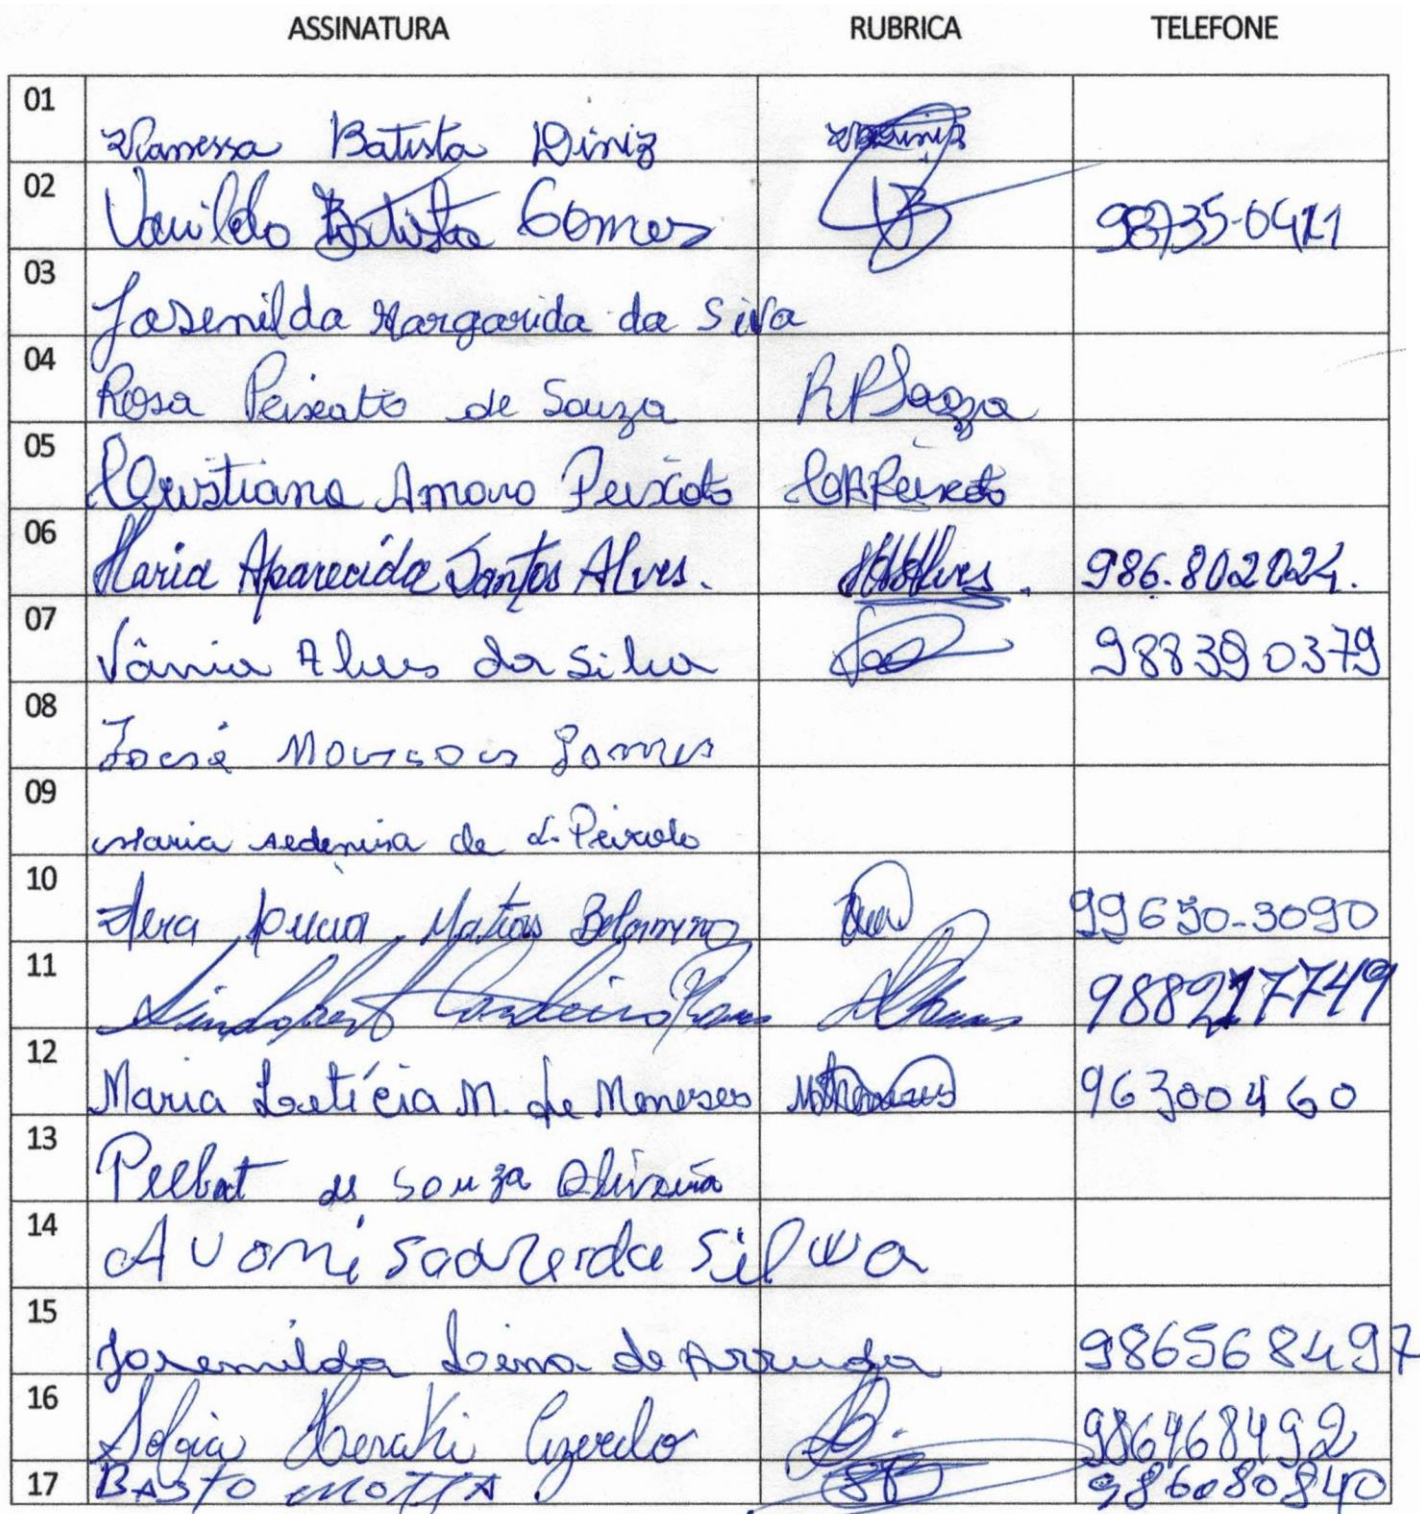 ASSINATURA RUBRICA TELEFONE
01 Vanessa Batista Diniz
02 Vanildo Batista Gomes VB
03 Josenilda Margarida da Silva
04 Rosa Peixoto de Souza RPSouza
05 Cristiana Amaro Peixoto CAPeixoto
06 Maria Aparecida Santos Alves. 986.802024.
07 Vânia Alves da Silva 988390379
08 Gomes
09 Maria de L. Peixoto
10 Vera Lúcia Matias 99650-3090
11 Cordeiro 988217749
12 Maria Letícia M. de Meneses 96300460
13 de Souza Oliveira
14 Silva
15 Josenilda Lima de Arruda 986568497
16 Azevedo 986468492
17 BASTO MOTTA 986080840